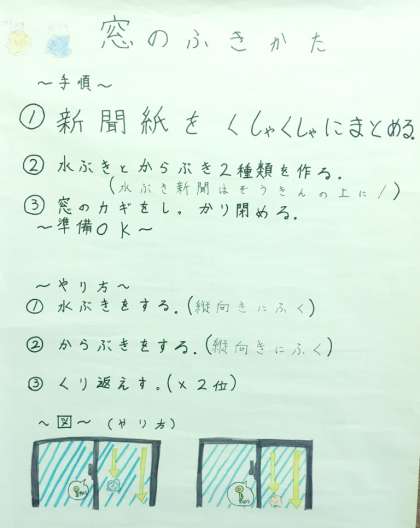 窓のふきかた
～手順～
① 新聞紙をくしゃくしゃにまとめる
② 水ぶきとからぶき2種類を作る.
(水ぶき新聞はぞうきんの上に!)
③ 窓のカギをしっかり閉める.
～準備OK～
～やり方～
① 水ぶきをする.(縦向きにふく)
② からぶきをする.(縦向きにふく)
③ くり返えす。(×2位)
～図～ (やり方)